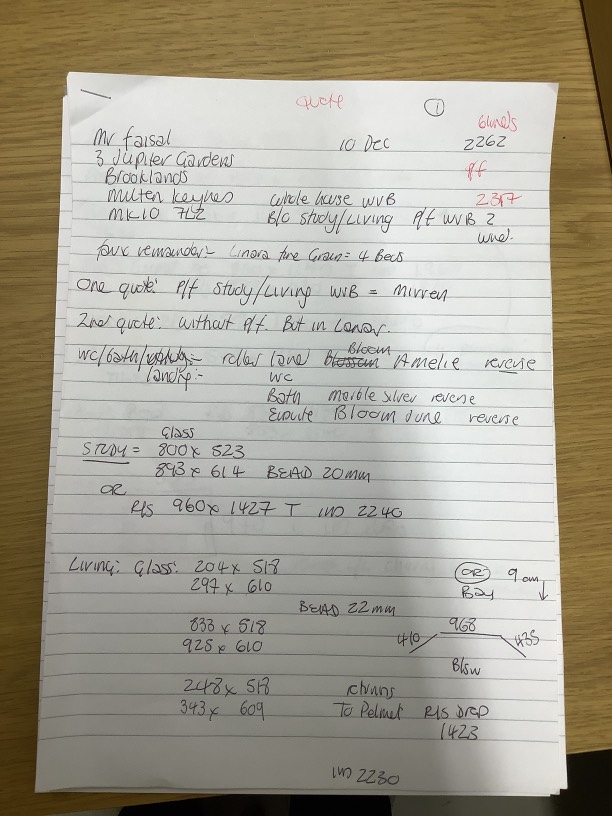 quote ①
6 wnds
Mr Faisal 10 Dec 2262
3 Jupiter Gardens P/f
Brooklands 2317
Milten Keynes whole house WVB
MK10 7LZ B/o study/Living P/f WVB 2
wnd.
remainder:- Linora fine Grain = 4 Beds
One quote: P/f study/Living WVB = Mirren
2nd quote: without P/f. But in Lanor.
WC/Bath/ :- roller land Blossom Bloom Amelie reverse
Landip:- WC
Bath marble silver reverse
Ensuite Bloom June reverse
Glass
STUDY = 800 x 523
893 x 614 BEAD 20mm
OR
R/S 960 x 1427 T IND 2240
Living: Glass: 204 x 518 OR 9am
297 x 610 Bay ↓
BEAD 22mm
833 x 518 968
925 x 610 410 435
B/sw
248 x 518 chains
343 x 609 To Pelmet R/S Drop
1423
IND 2230